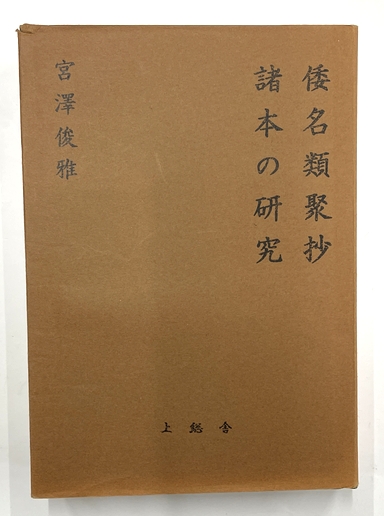 倭名類聚抄
諸本の研究
宮澤俊雅
上総舎